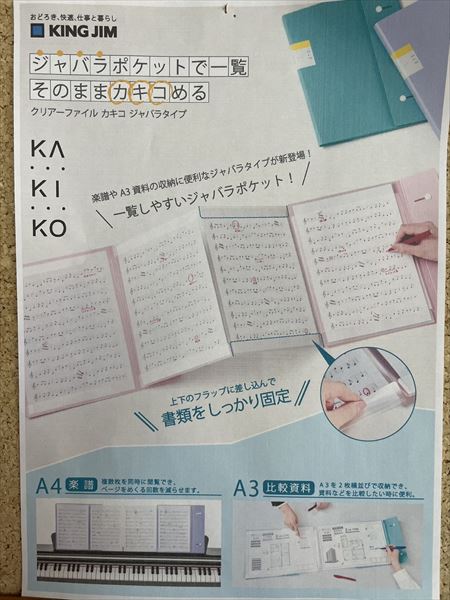 おどろき、快適、仕事と暮らし
KING JIM
ジャバラポケットで一覧
そのままカキコめる
クリアーファイル カキコ ジャバラタイプ
KA
KI
KO
楽譜や A3 資料の収納に便利なジャバラタイプが新登場!
一覧しやすいジャバラポケット!
上下のフラップに差し込んで
書類をしっかり固定
A4 楽譜
複数枚を同時に閲覧でき、
ページをめくる回数を減らせます。
A3 比較資料
A3を2枚横並びで収納でき、
資料などを比較したい時に便利。